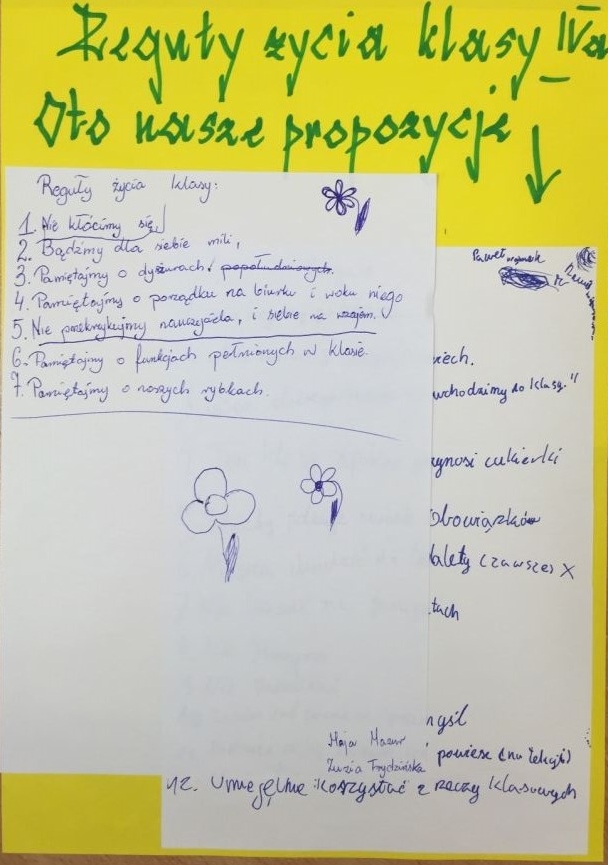 Reguły życia klasy IVa
Oto nasze propozycje
Reguły życia klasy:
1. Nie kłócimy się
2. Bądźmy dla siebie mili,
3. Pamiętajmy o dyżurach! popołudniowych.
4. Pamiętajmy o porządku na biurku i woku niego
5. Nie przekrzykujmy nauczyciela, i siebie na wzajem.
6. Pamiętajmy o funkcjach pełnionych w klasie.
7. Pamiętajmy o naszych rybkach.
Maja Mazur
Zuzia
Paweł
wchodzimy do klasy."
cukierki
obowiązków
zawsze x
myśl
powiesz (na lekcji)
12. umiejętnie korzystać z rzeczy klasowych